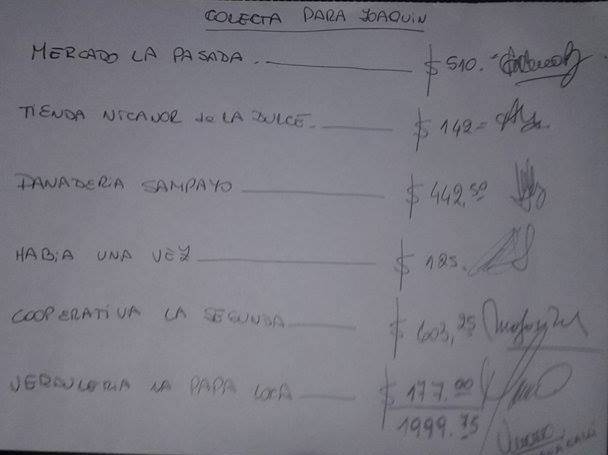 COLECTA PARA JOAQUIN
MERCADO LA PASADA. $ 510.-
TIENDA NICANOR de LA DULCE. $ 142=
PANADERIA SAMPAYO $ 442,50
HABIA UNA VEZ $ 125.
COOPERATIVA LA SEGUNDA $ 603,25
VERDULERIA LA PAPA LOCA $ 177.00
1999.75